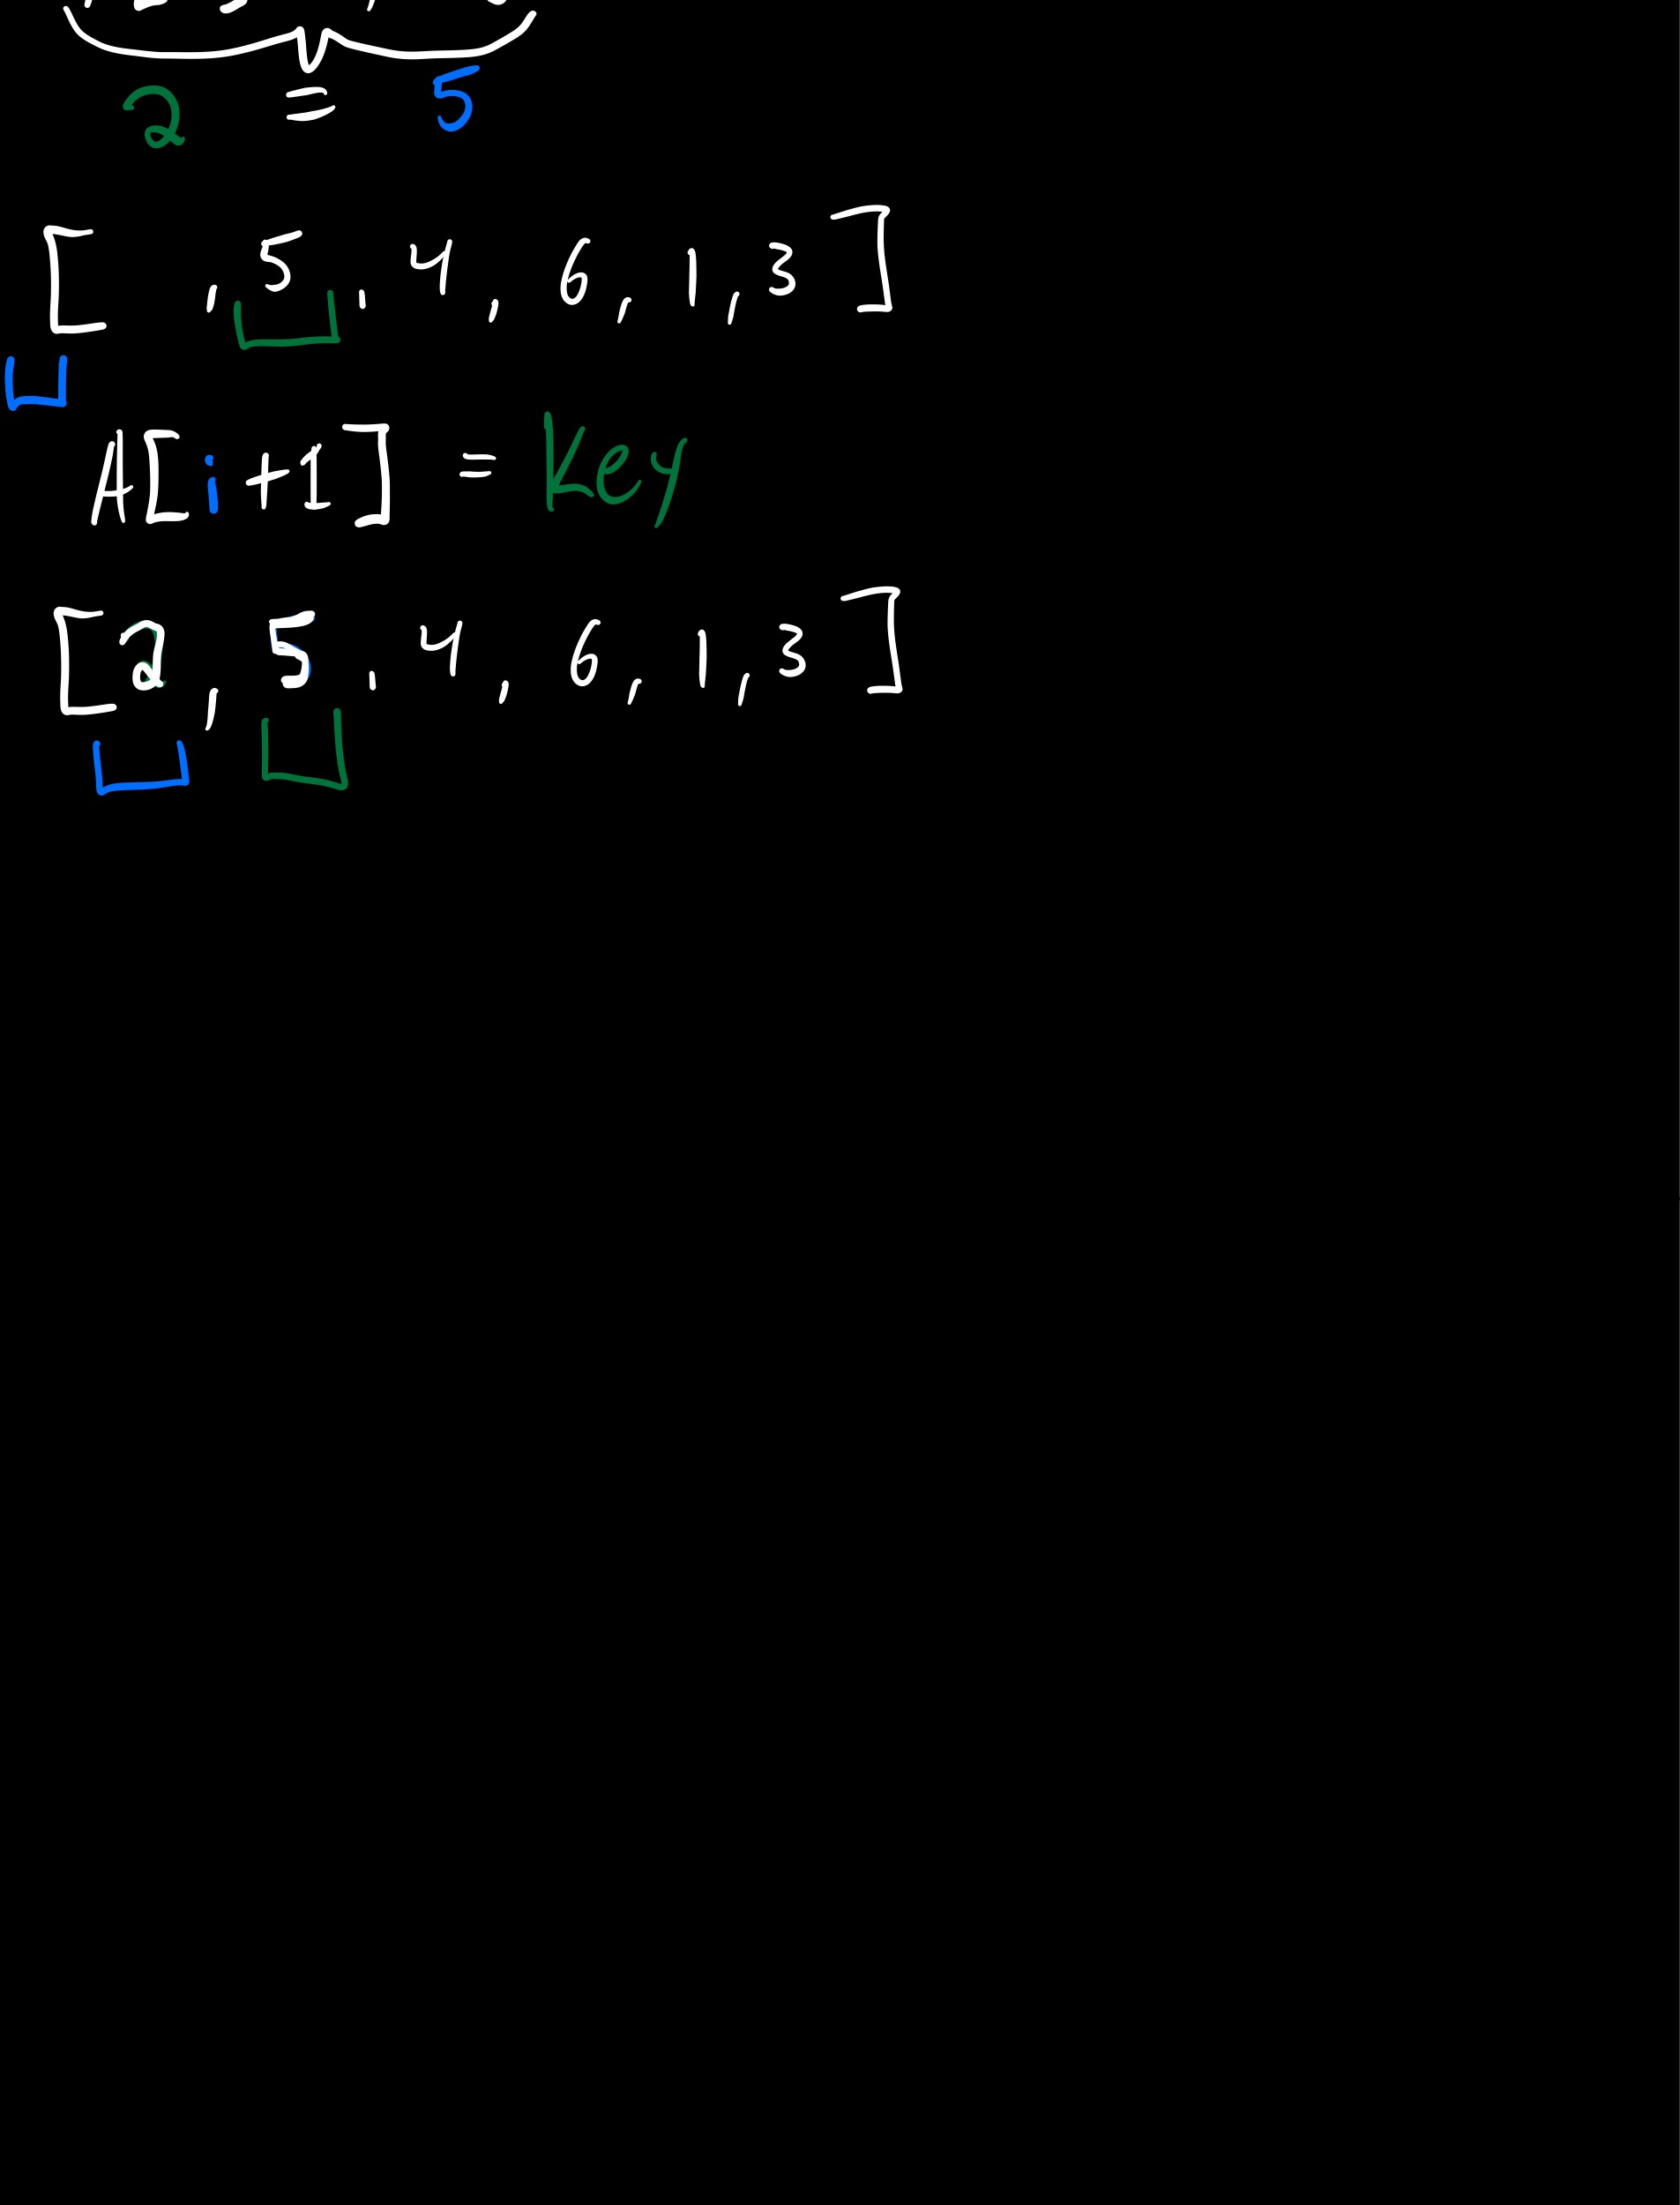 2 = 5
[ , 5, 4, 6, 1, 3]
A[i+1] = Key
[2, 5, 4, 6, 1, 3]